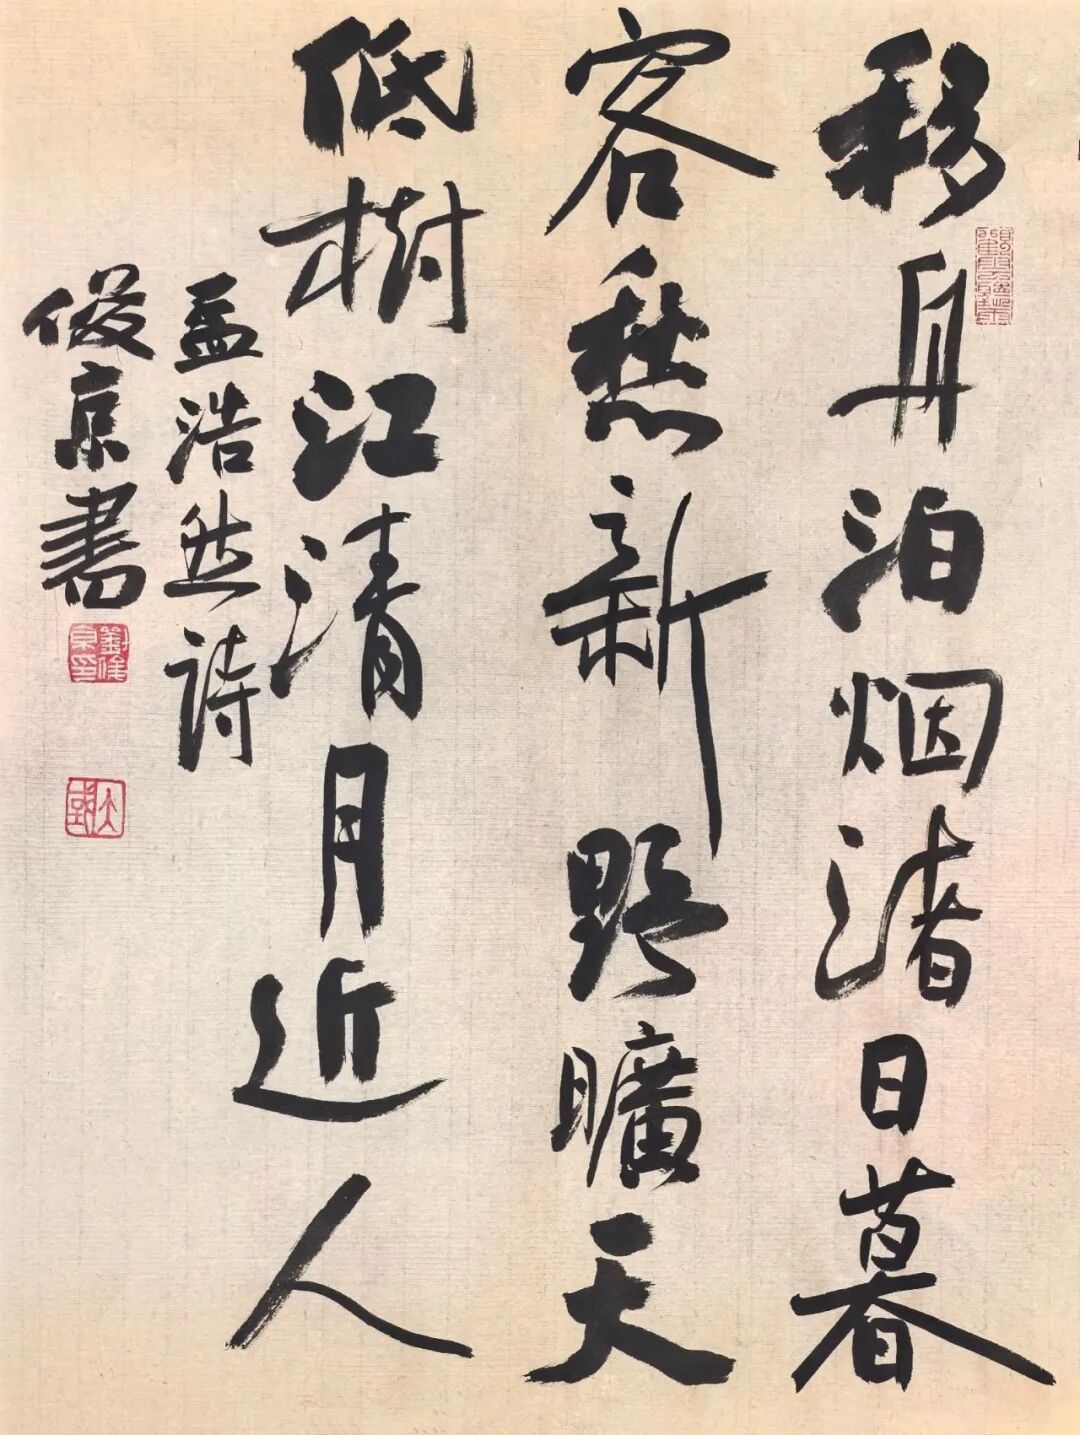 移舟泊烟渚日暮
客愁新野曠天
低樹江清月近人
孟浩然詩
俊京書
劉俊京印